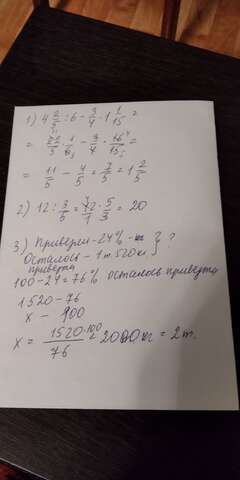 1) 4 2/5 : 6 - 3/4 · 1 1/15 =
= 22/5 · 1/6 - 3/4 · 16/15 =
= 11/5 - 4/5 = 7/5 = 1 2/5
2) 12 : 3/5 = 12/1 · 5/3 = 20
3) Привезли - 24% - ?
Осталось - 1т. 520кг. } ?
привезти
100-24=76% осталось привезти
1520-76
x - 100
x = 1520·100/76 = 2000кг = 2т.